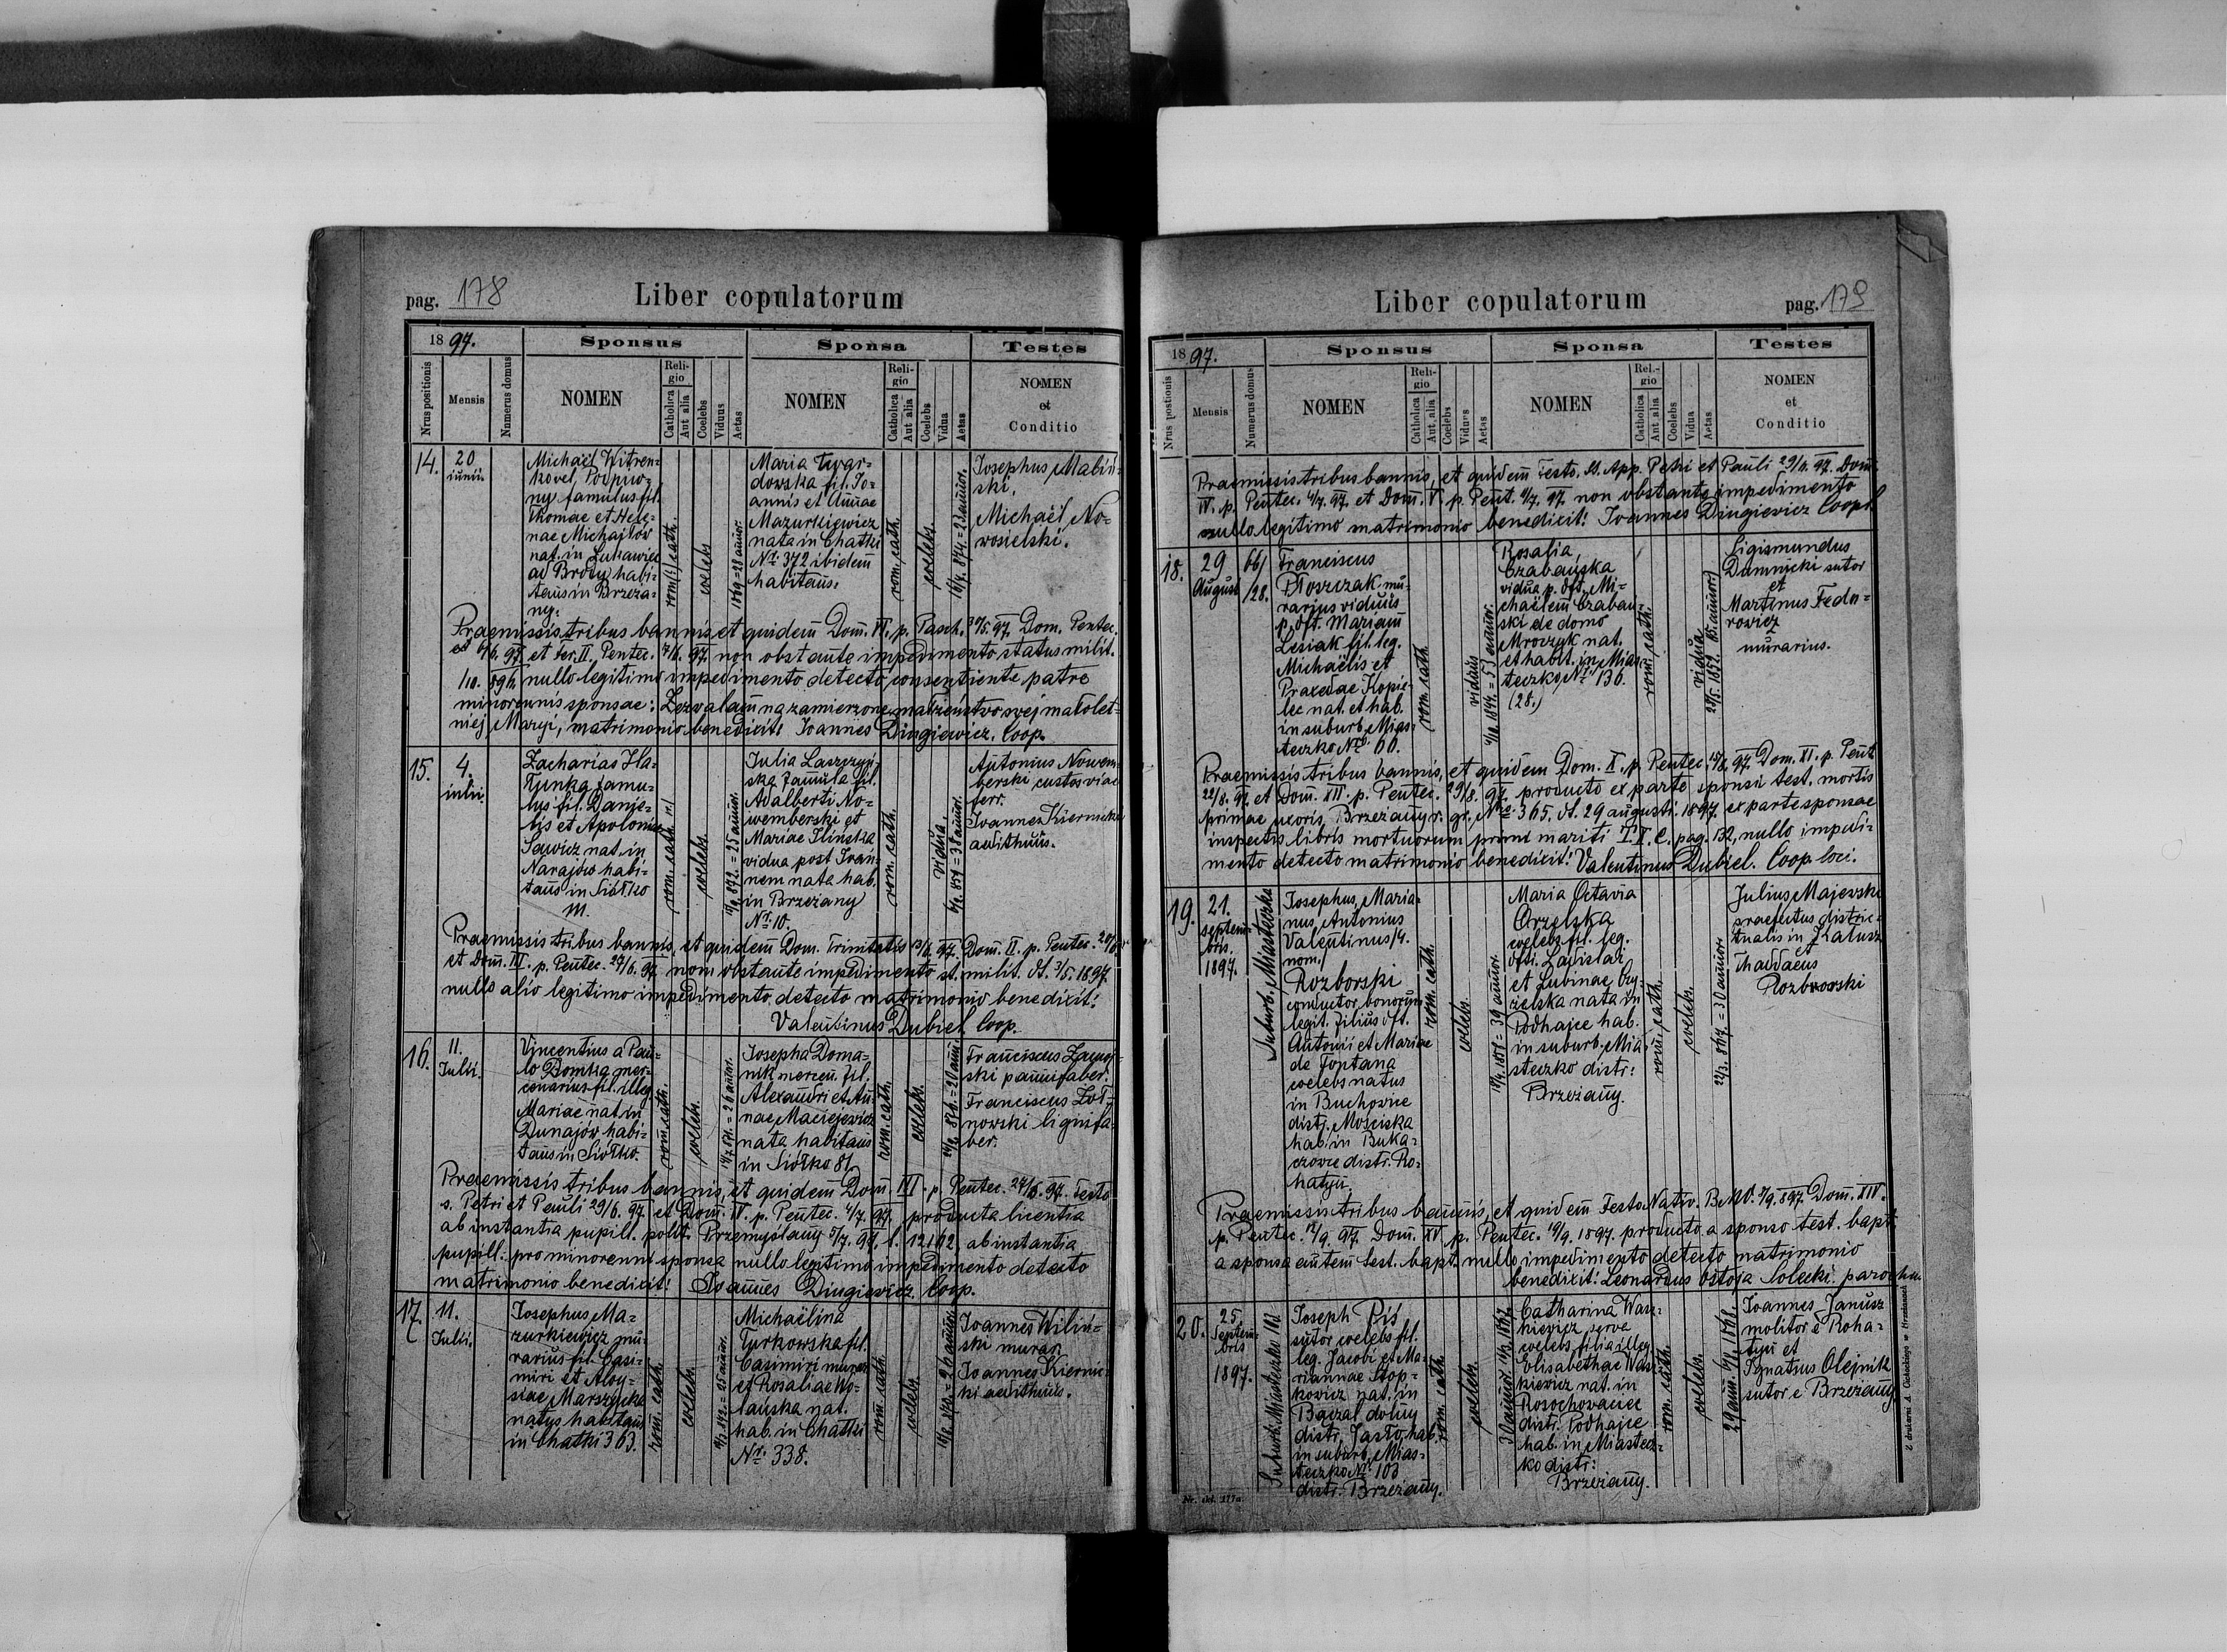 pag. 178
Liber copulatorum
1897.
Sponsus
Sponsa
Testes
Nrus positionis
Mensis
Numerus domus
NOMEN
Religio
Catholica
Aut alia
Coelebs
Viduus
Aetas
NOMEN
Religio
Catholica
Aut alia
Coelebs
Vidua
Aetas
NOMEN
et
Conditio
14.
20
iunii.
Michaël Witren-
famulus fil.
Thomae et Hele-
nae Michajłów
nat. in Łukawiec
ad Brody habi-
tans in Brzeża-
ny.
rom. cath.
coelebs
1869 = 28 annor.
Maria Twar-
dowska fil. Jo-
annis et Annae
Mazurkiewicz
nata in Chatki
Nr. 372 ibidem
habitans.
rom. cath.
coelebs.
16/7. 874. = 23 annor.
Josephus Mabiń-
ski.
Michaël No-
wosielski.
Praemissis tribus bannis, et quidem Dom. VI. p. Pasch. 30/5. 97. Dom. Pentec.
et 6/6. 97. et fer. II. Pentec. 7/6. 97. non obstante impedimento status milit.
1/10. 896. nullo legitimo impedimento detecto consentiente patre
minorennis sponsae: Zezwalam na zamierzone małżeństwo swej małolet-
niej Maryi, matrimonio benedixit: Joannes Dziugiewicz. Coop.
15.
4.
iulii.
Zacharias Ha-
famu-
lus fil. Danie-
lis et Apoloniae
Sawicz nat. in
Narajów habi-
tans in Siółko
M.
rom. cath.
coelebs.
1872. = 25 annor.
Julia Laszczyń-
ska famula fil.
Adalberti No-
wemberski et
Mariae Ilinska
vidua post Joan-
nem nata hab.
in Brzeżany
Nr. 10.
rom. cath.
vidua.
859 = 38 annor.
Antonius Nowem-
berski custos viae
ferr.
Joannes Kiernicki
aedithuus.
Praemissis tribus bannis, et quidem Dom. Trinitatis 13/6. 97. Dom. II. p. Pentec. 20/6.
et Dom. III. p. Pentec. 27/6. 97. non obstante impedimento st. milit. dt. 3/5. 1897.
nullo alio legitimo impedimento detecto matrimonio benedixit:
Valentinus Dubiel. Coop.
16.
11.
Julii.
Vincentius a Pau-
lo Domka mer-
cenarius fil. illeg.
Mariae nat. in
Dunajów, habi-
tans in Siółko.
rom. cath.
coelebs.
1871. = 26 annor.
Josepha Doma-
nik mercen. fil.
Alexandri et An-
nae Maciejewicz
nata habitans
in Siółko 81.
rom. cath.
coelebs.
876. = 20 ann.
Franciscus
ski pannifaber.
Franciscus Żoł-
nowski lignifa-
ber.
Praemissis tribus bannis, et quidem Dom. III. p. Pentec. 27/6. 97. Festo
s. Petri et Pauli 29/6. 97. et Dom. IV. p. Pentec. 4/7. 97. producta licentia
ab instantia pupill. polit. Przemyślany 5/7. 97. l. 12162, ab instantia
pupill. pro minorenni sponsa nullo legitimo impedimento detecto
matrimonio benedixit: Joannes Dziugiewicz. Coop.
17.
11.
Julii.
Josephus Ma-
zurkiewicz mu-
rarius fil. Casi-
miri et Aloy-
siae Marszycka
natus habitans
in Chatki 363.
rom. cath.
coelebs.
872. = 25 annor.
Michaëlina
Turkowska fil.
Casimiri murar.
et Rosaliae Wo-
lańska nat.
hab. in Chatki
Nr. 338.
rom. cath.
coelebs.
= 26 annor.
Joannes Wiliń-
ski murar.
Joannes Kiernic-
ki aedithuus.
Liber copulatorum
pag. 179
1897.
Sponsus
Sponsa
Testes
Nrus postionis
Mensis
Numerus domus
NOMEN
Religio
Catholica
Aut. alia
Coelebs
Viduus
Aetas
NOMEN
Religio
Catholica
Aut alia
Coelebs
Vidua
Aetas
NOMEN
et
Conditio
Praemissis tribus bannis, et quidem Festo. SS. App. Petri et Pauli 29/6. 97. Dom.
IV. p. Pentec. 4/7. 97. et Dom. V. p. Pent. 97. non obstante impedimento
nullo legitimo matrimonio benedixit: Joannes Dziugiewicz Coop.
18.
29
August
66/
/28.
Franciscus
Płoszczak mu-
rarius viduus
p. dft. Mariam
Lesiak fil. leg.
Michaëlis et
Praxedae Kopie-
lec nat. et hab.
in suburb. Mias-
teczko Nro. 66.
rom. cath.
viduus
1844. = 53 annor.
Rosalia
Czabańska
vidua p. dft. Mi-
chaëlem Czabań-
ski de domo
Mroczyk nat.
et habit. in Mias-
teczko Nr. 136.
(28.)
rom. cath.
vidua
Sigismundus
Damnicki sutor
et
Martinus Fedo-
rowicz
murarius.
Praemissis tribus bannis, et quidem Dom. X. p. Pentec. 15/8. 97. Dom. XI. p. Pent.
22/8. 97. et Dom. XII. p. Pentec. 29/8. 97. producto ex parte sponsi test. mortis
primae uxoris, Brzeżany r. gr. Nro. 365. dt. 29 augusti 1897. ex parte sponsae
inspectis libris mortuorum primi mariti T. I. C. pag. 132, nullo impedi-
mento detecto matrimonio benedixit: Valentinus Dubiel. Coop. loci.
19.
21.
septem-
bris.
1897.
Suburb. Miasteczko
Josephus, Maria-
nus, Antonius
Valentinus /4.
nom./
Rozborski
conductor bonorum
legit. filius dft.
Antonii et Mariae
de Fontana
coelebs natus
in Buchowce
distr. Mościska
hab. in Buka-
czowce distr. Ro-
hatyn.
rom. cath.
coelebs.
= 39 annor.
Maria Octavia
Orzelska
coelebs fil. leg.
dfti. Ladislai
et Lubinae Or-
zelska nata in
Podhajce hab.
in suburb. Mia-
steczko distr:
Brzeżany.
rom. cath.
coelebs.
22/3. 867. = 30 annor.
Julius Majewski
praefectus distric-
tualis in Kałusz
Thaddaeus
Rozborski
Praemissis tribus bannis, et quidem Festo Nativ. BMV. 8/9. 897. Dom. XIV.
p. Pentec. 12/9. 97. Dom. XV. p. Pentec. 19/9. 1897. producto a sponso test. bapt.
a sponsa autem test. bapt. nullo impedimento detecto matrimonio
benedixit: Leonardus Ostoja Solecki. parochus
20.
25.
Septem-
bris
1897.
Suburb. Miasteczko 103
Joseph Pis
sutor coelebs fil.
leg. Jacobi et Ma-
riannae Stop-
kowicz nat. in
Bączal dolny
distr. Jasło, hab.
in suburb. Mias-
teczko Nr. 103
distr. Brzeżany.
rom. cath.
coelebs.
30 annor. 1867.
Catharina Wasz-
kiewicz serva
coelebs filia illeg.
Elisabethae Wasz-
kiewicz nat. in
Rosochowaciec
distr. Podhajce
hab. in Miastecz-
ko distr:
Brzeżany.
rom. cath.
coelebs.
29 ann. 1868.
Joannes Janusz
molitor e Roha-
tyn et
Ignatius Olejnik
sutor e Brzeżany.
Z drukarni A. Cisteckiego w Brzeżanach